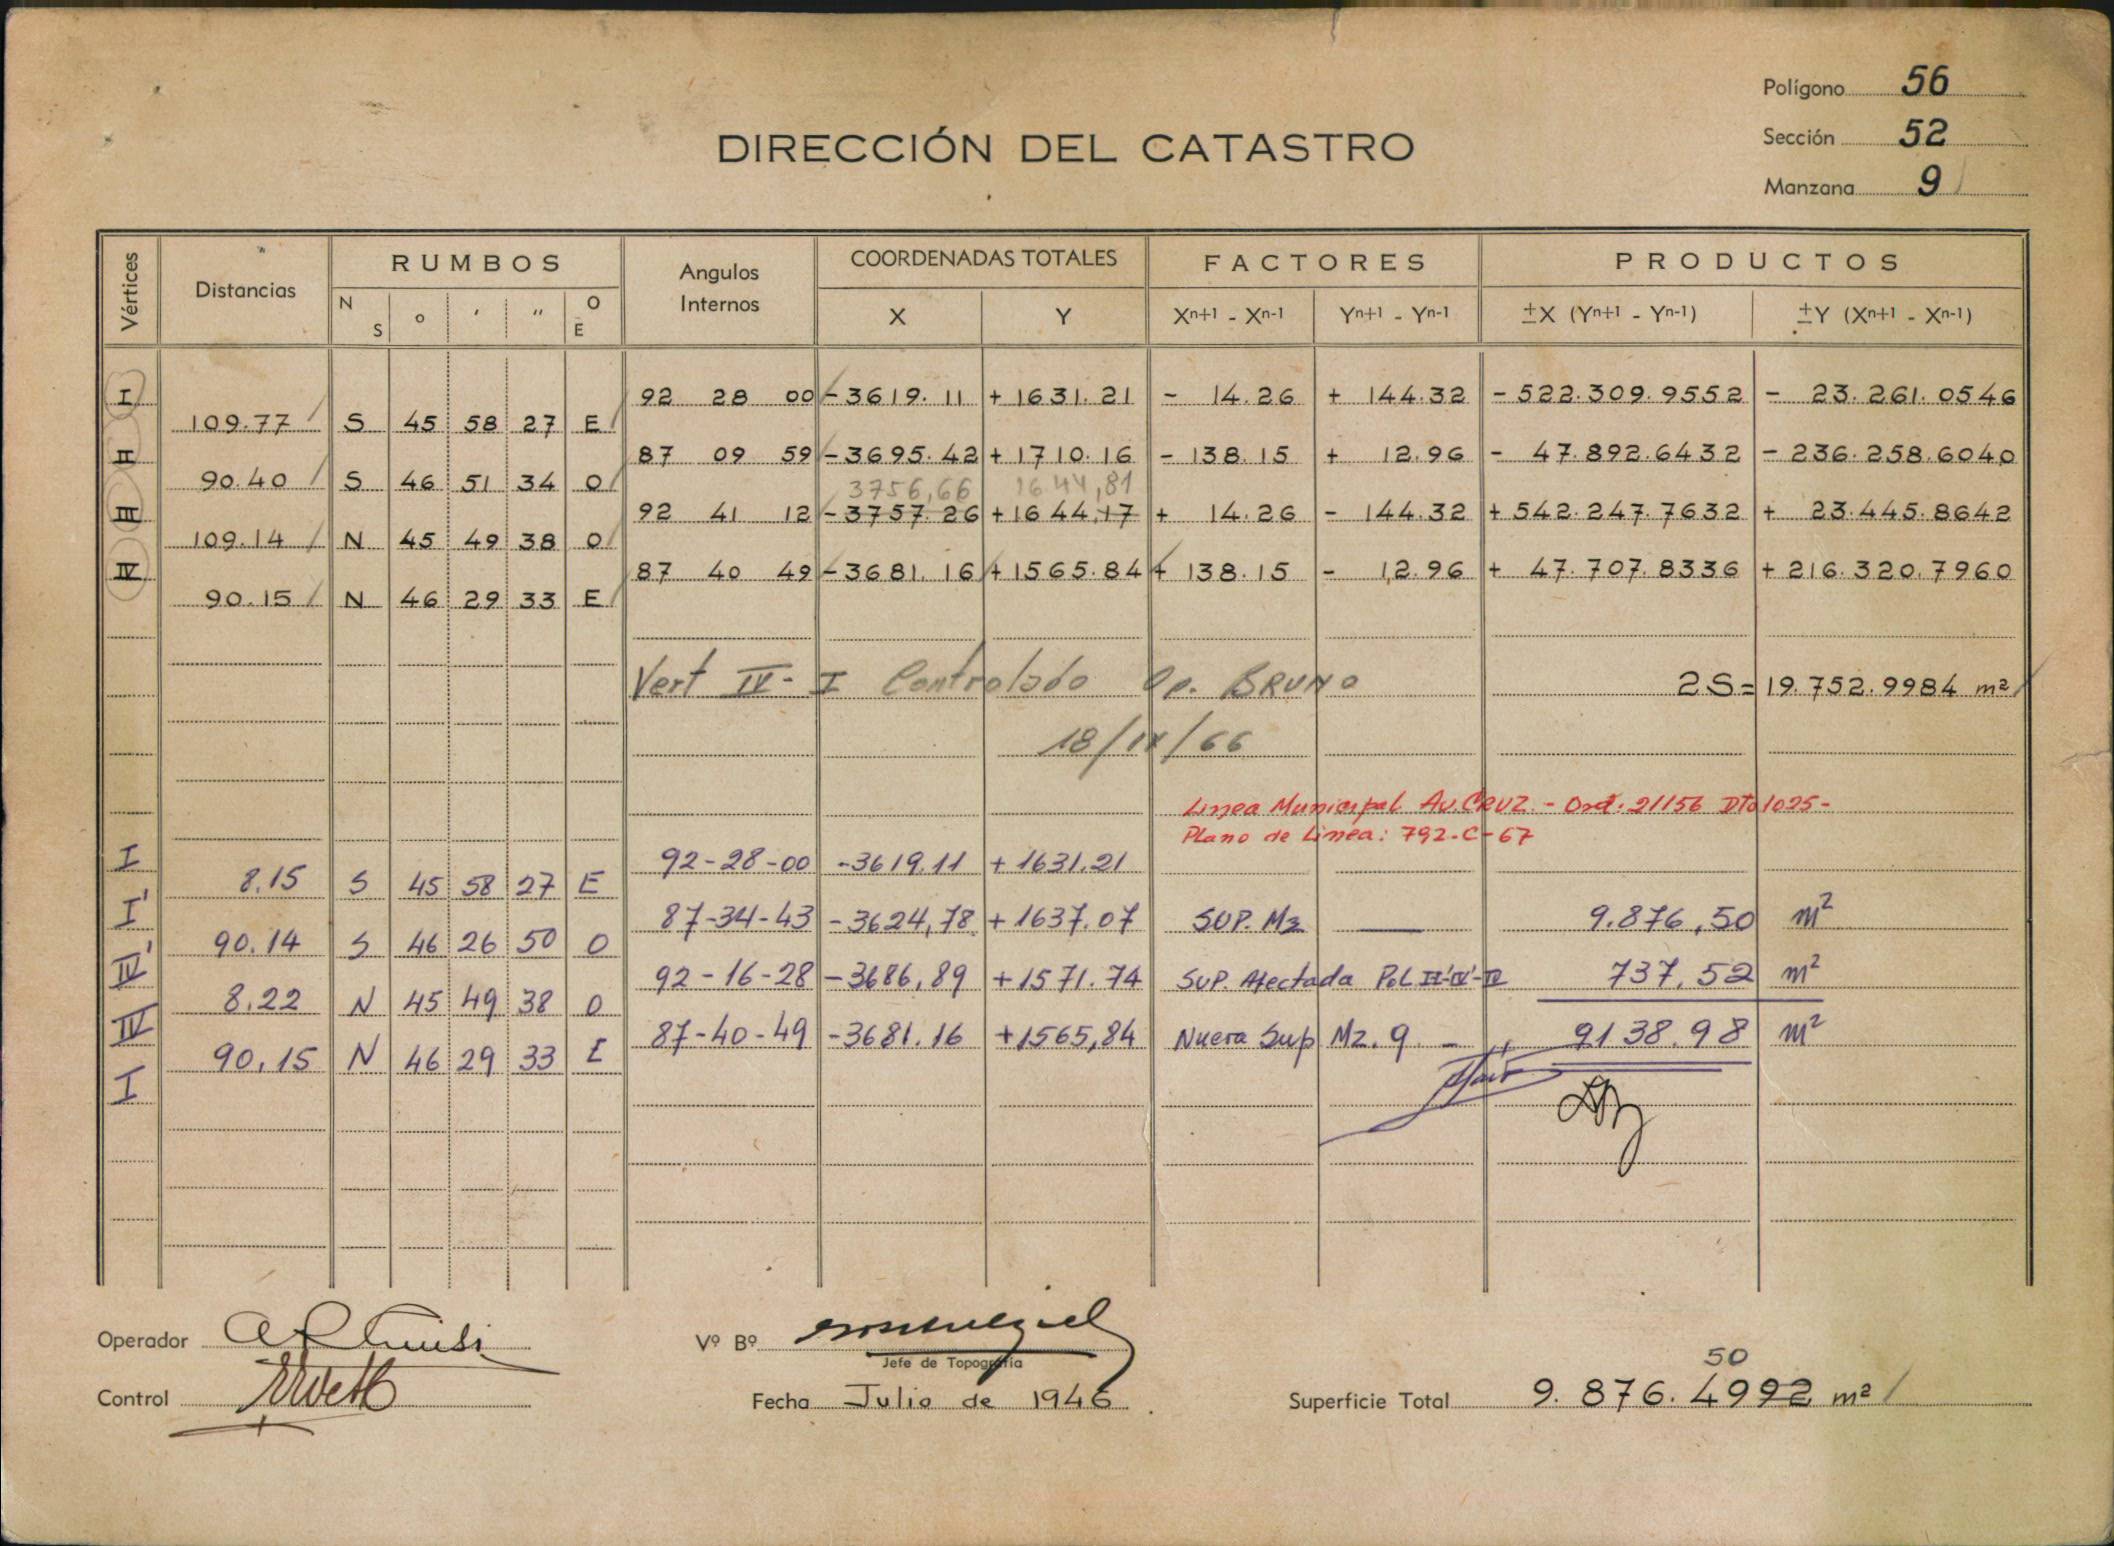 Polígono 56
DIRECCIÓN DEL CATASTRO
Sección 52
Manzana 9
Vértices Distancias RUMBOS Angulos Internos COORDENADAS TOTALES FACTORES PRODUCTOS
N S ° ' " O E X Y Xn+1 - Xn-1 Yn+1 - Yn-1 ±X (Yn+1 - Yn-1) ±Y (Xn+1 - Xn-1)
I 92 28 00 -3619.11 +1631.21 - 14.26 + 144.32 -522.309.9552 - 23.261.0546
109.77 S 45 58 27 E
II 87 09 59 -3695.42 +1710.16 - 138.15 + 12.96 - 47.892.6432 - 236.258.6040
90.40 S 46 51 34 O
3756,66 1644,81
III 92 41 12 -3757.26 +1644.17 + 14.26 - 144.32 +542.247.7632 + 23.445.8642
109.14 N 45 49 38 O
IV 87 40 49 -3681.16 +1565.84 + 138.15 - 12.96 + 47.707.8336 + 216.320.7960
90.15 N 46 29 33 E
Vert IV - I Controlado Op. BRUNO
2S= 19.752.9984 m²
18/IX/66
Linea Municipal Av. CRUZ. - Ord. 21156 Dto 1025 -
Plano de Linea: 792-C-67
I 92-28-00 -3619.11 + 1631.21
8.15 S 45 58 27 E
I' 87-34-43 -3624,78 + 1637.07 SUP. Mz 9.876,50 m²
90.14 S 46 26 50 O
IV' 92-16-28 -3686,89 +1571.74 SUP. Afectada Pol II-IV'-IV 737,52 m²
8.22 N 45 49 38 O
IV 87-40-49 -3681.16 +1565,84 Nueva Sup Mz. 9 - " 9138.98 m²
90,15 N 46 29 33 E
I
Operador
Vº Bº
Jefe de Topografía
50
Control
Fecha Julio de 1946
Superficie Total 9.876.4992 m²